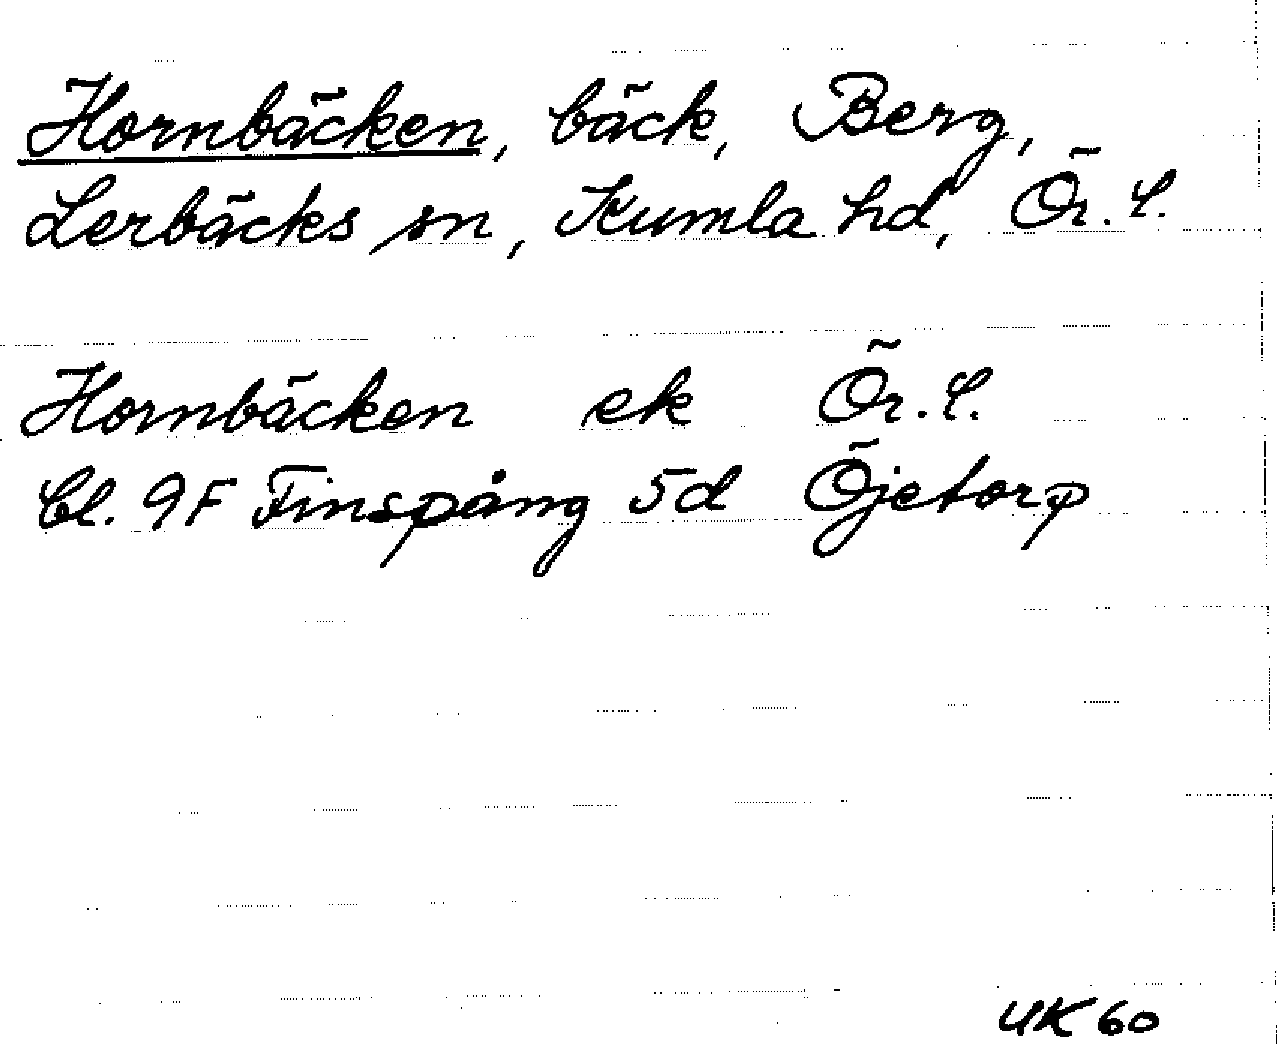 Hornbäcken, bäck, Berg,
Lerbäcks sn, Kumla hd, Ör. l.
Hornbäcken ek Ör. l.
Bl. 9F Finspång 5d Öjetorp
UK 60